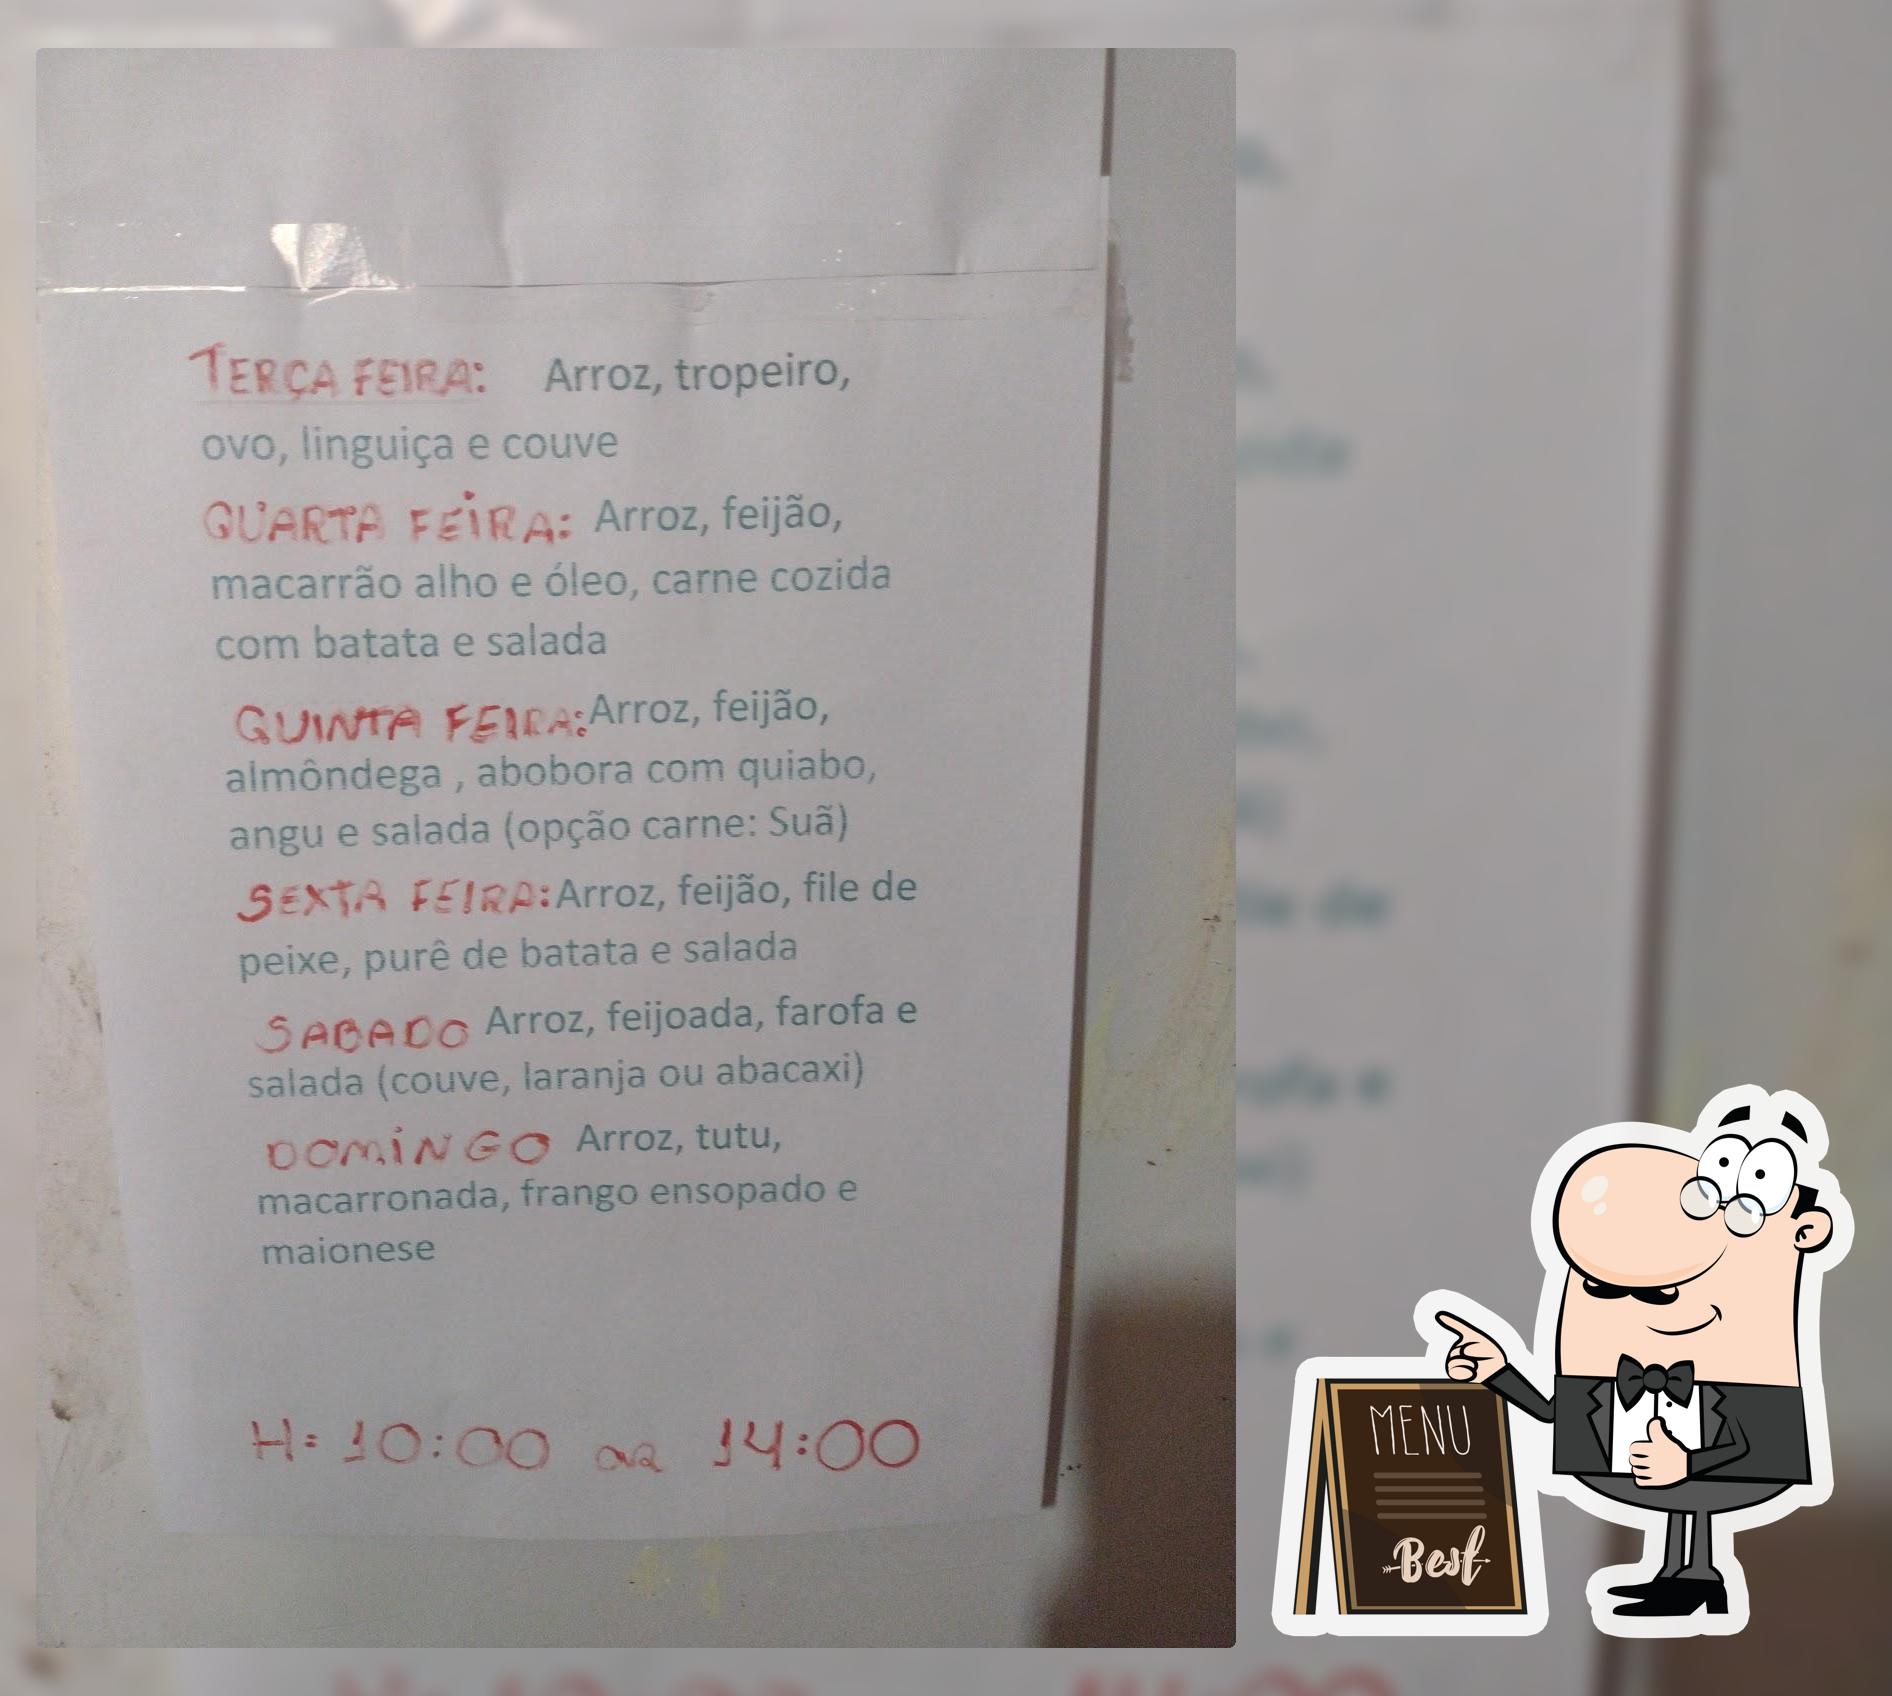 TERÇA FEIRA: Arroz, tropeiro,
ovo, linguiça e couve
QUARTA FEIRA: Arroz, feijão,
macarrão alho e óleo, carne cozida
com batata e salada
QUINTA FEIRA: Arroz, feijão,
almôndega , abobora com quiabo,
angu e salada (opção carne: Suã)
SEXTA FEIRA: Arroz, feijão, file de
peixe, purê de batata e salada
SABADO Arroz, feijoada, farofa e
salada (couve, laranja ou abacaxi)
DOMINGO Arroz, tutu,
macarronada, frango ensopado e
maionese
H: 10:00 as 14:00
MENU
Best